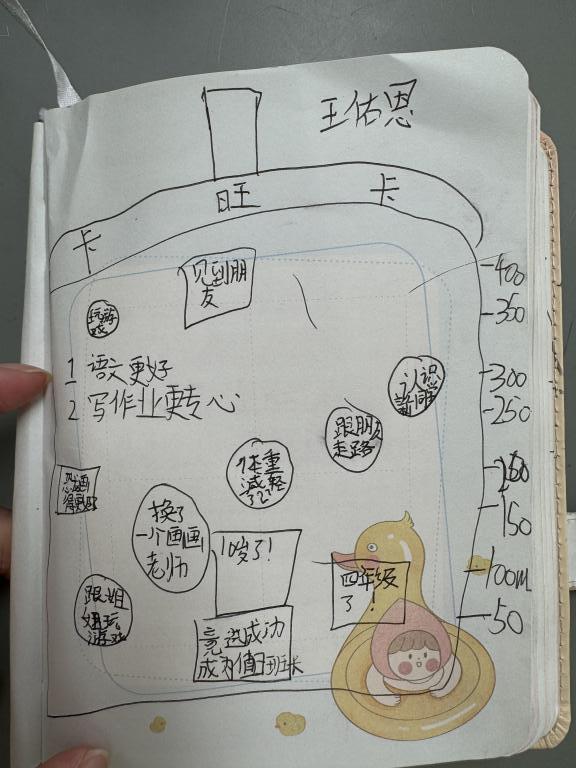 王佑恩
卡 旺 卡
见到朋
友
玩游
戏
1 语文更好
2 写作业更专心
认识
跟朋友
走路
体重
减轻
了2
换了
一个画画
老师
10岁了!
四年级
了!
跟姐
姐玩
游戏
竞选成功
成为值日班长
400
350
300
250
150
100ml
50